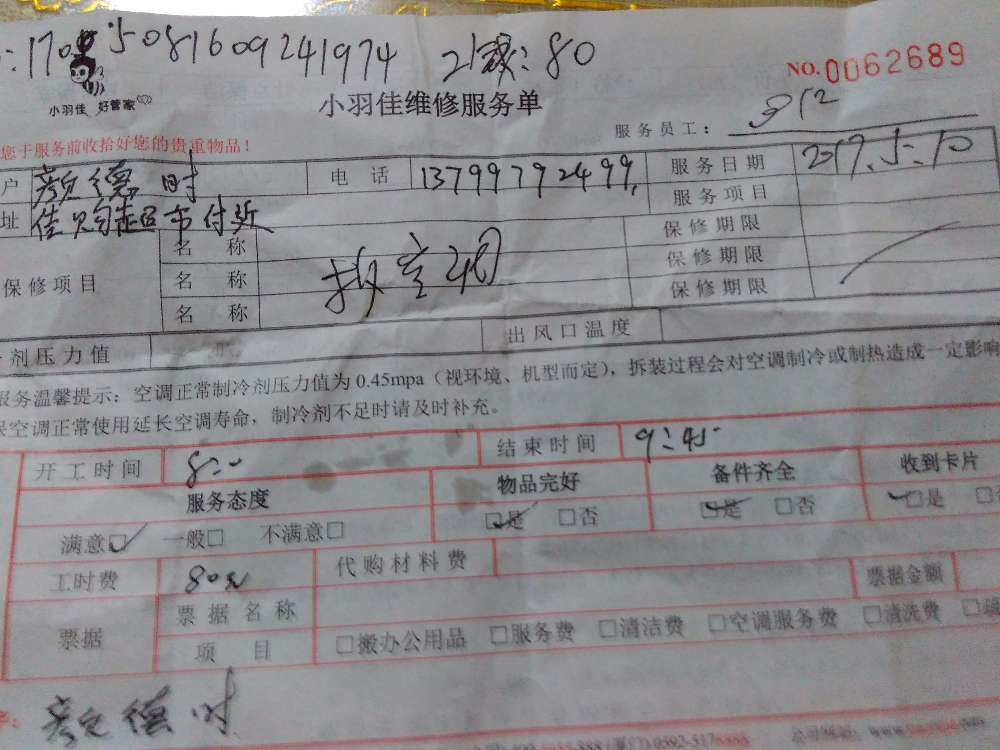 :170 5081609241974 80
NO.0062689
小羽佳 好管家
小羽佳维修服务单
服务员工: 912
您于服务前收拾好您的贵重物品!
户 颜德时 电 话 13799792499 服务日期 2017.5.10
址 佳贝勾超市付近 服务项目
保修项目 名 称 保修期限
名 称 拆空调 保修期限
名 称 保修期限
剂压力值 出风口温度
服务温馨提示：空调正常制冷剂压力值为 0.45mpa（视环境、机型而定），拆装过程会对空调制冷或制热造成一定影响
保空调正常使用延长空调寿命，制冷剂不足时请及时补充。
开工时间 8:00 结束时间 9:45
服务态度 物品完好 备件齐全 收到卡片
满意☑ 一般□ 不满意□ ☑是 □否 ☑是 □否 ☑是
工时费 80元 代购材料费 票据金额
票据 票据名称
项 目 □搬办公用品 □服务费 □清洁费 □空调服务费 □清洗费
颜德时